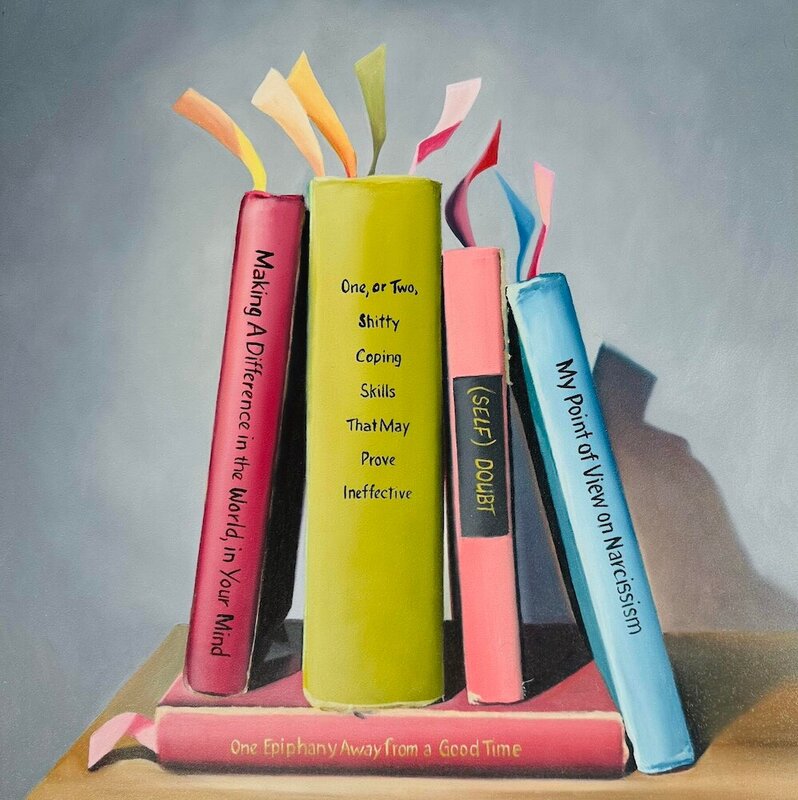 Making A Difference in the World, in Your Mind
One, or Two,
Shitty
Coping
Skills
That May
Prove
Ineffective
(SELF) DOUBT
My Point of View on Narcissism
One Epiphany Away from a Good Time